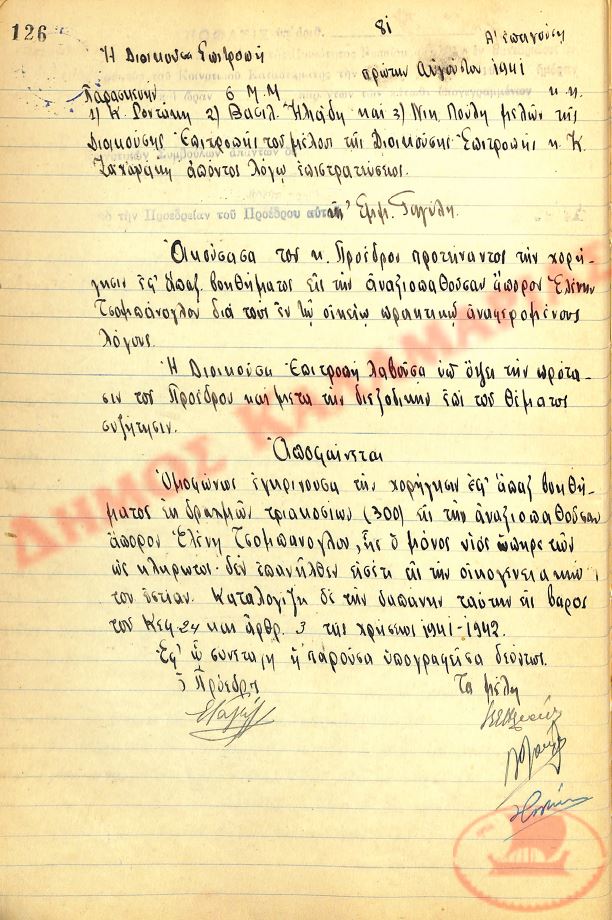 126
81
Α' Επαγούση
Ἡ Διοικοῦσα Επιτροπή
πρώτην Αὐγούστου 1941
Παρασκευήν 6 Μ.Μ κ.κ.
1) Κ. Ροντώκη 2) Βασίλ. Ἠλιάδη καί 3) Νικ. Πούλη μελῶν τῆς
Διοικούσης Ἐπιτροπῆς τοῦ μέλους τῆς Διοικούσης Ἐπιτροπῆς κ. Κ
Ζαχαράκη ἀπόντος λόγω ἐπιστρατεύσεως.
τὴν Προεδρείαν τοῦ Προέδρου αὐτῆς Ἐμμ. Γαγύλη.
Ἀκούσασα τοῦ κ. Προέδρου προτείναντος τήν χορή-
γησιν ἐφ' ἅπαξ βοηθήματος εἰς τήν ἀναξιοπαθοῦσαν ἄπορον Ἑλένην
Τσομπάνογλου διά τούς ἐν τῷ οἰκείῳ πρακτικῷ ἀναφερομένους
λόγους.
Ἡ Διοικοῦσα Ἐπιτροπή λαβοῦσα ὑπ' ὄψει τήν πρότα-
σιν τοῦ Προέδρου καί μετά τήν διεξοδικήν ἐπί τοῦ θέματος
συζήτησιν.
Ἀποφαίνεται
Ὁμοφώνως ἐγκρίνουσα τήν χορήγησιν ἐφ' ἅπαξ βοηθή-
ματος ἐκ δραχμῶν τριακοσίων (300) εἰς τήν ἀναξιοπαθοῦσαν
ἄπορον Ἑλένη Τσομπάνογλου, ἧς ὁ μόνος υἱός ὑπηρετῶν
ὡς κληρωτός δέν ἐπανῆλθεν εἰσέτι εἰς τήν οἰκογενειακήν
του ἑστίαν. Καταλογίζει δέ τήν δαπάνην ταύτην εἰς βάρος
τοῦ Κεφ. 24 καί ἄρθρ. 3 τῆς χρήσεως 1941-1942.
Ἐφ' ᾧ συνετάγη ἡ παροῦσα ὑπογραφεῖσα δεόντως.
Ὁ Πρόεδρος Τα μέλη
ΔΗΜΟΣ ΚΑΛΑΜΑΡΙΑΣ